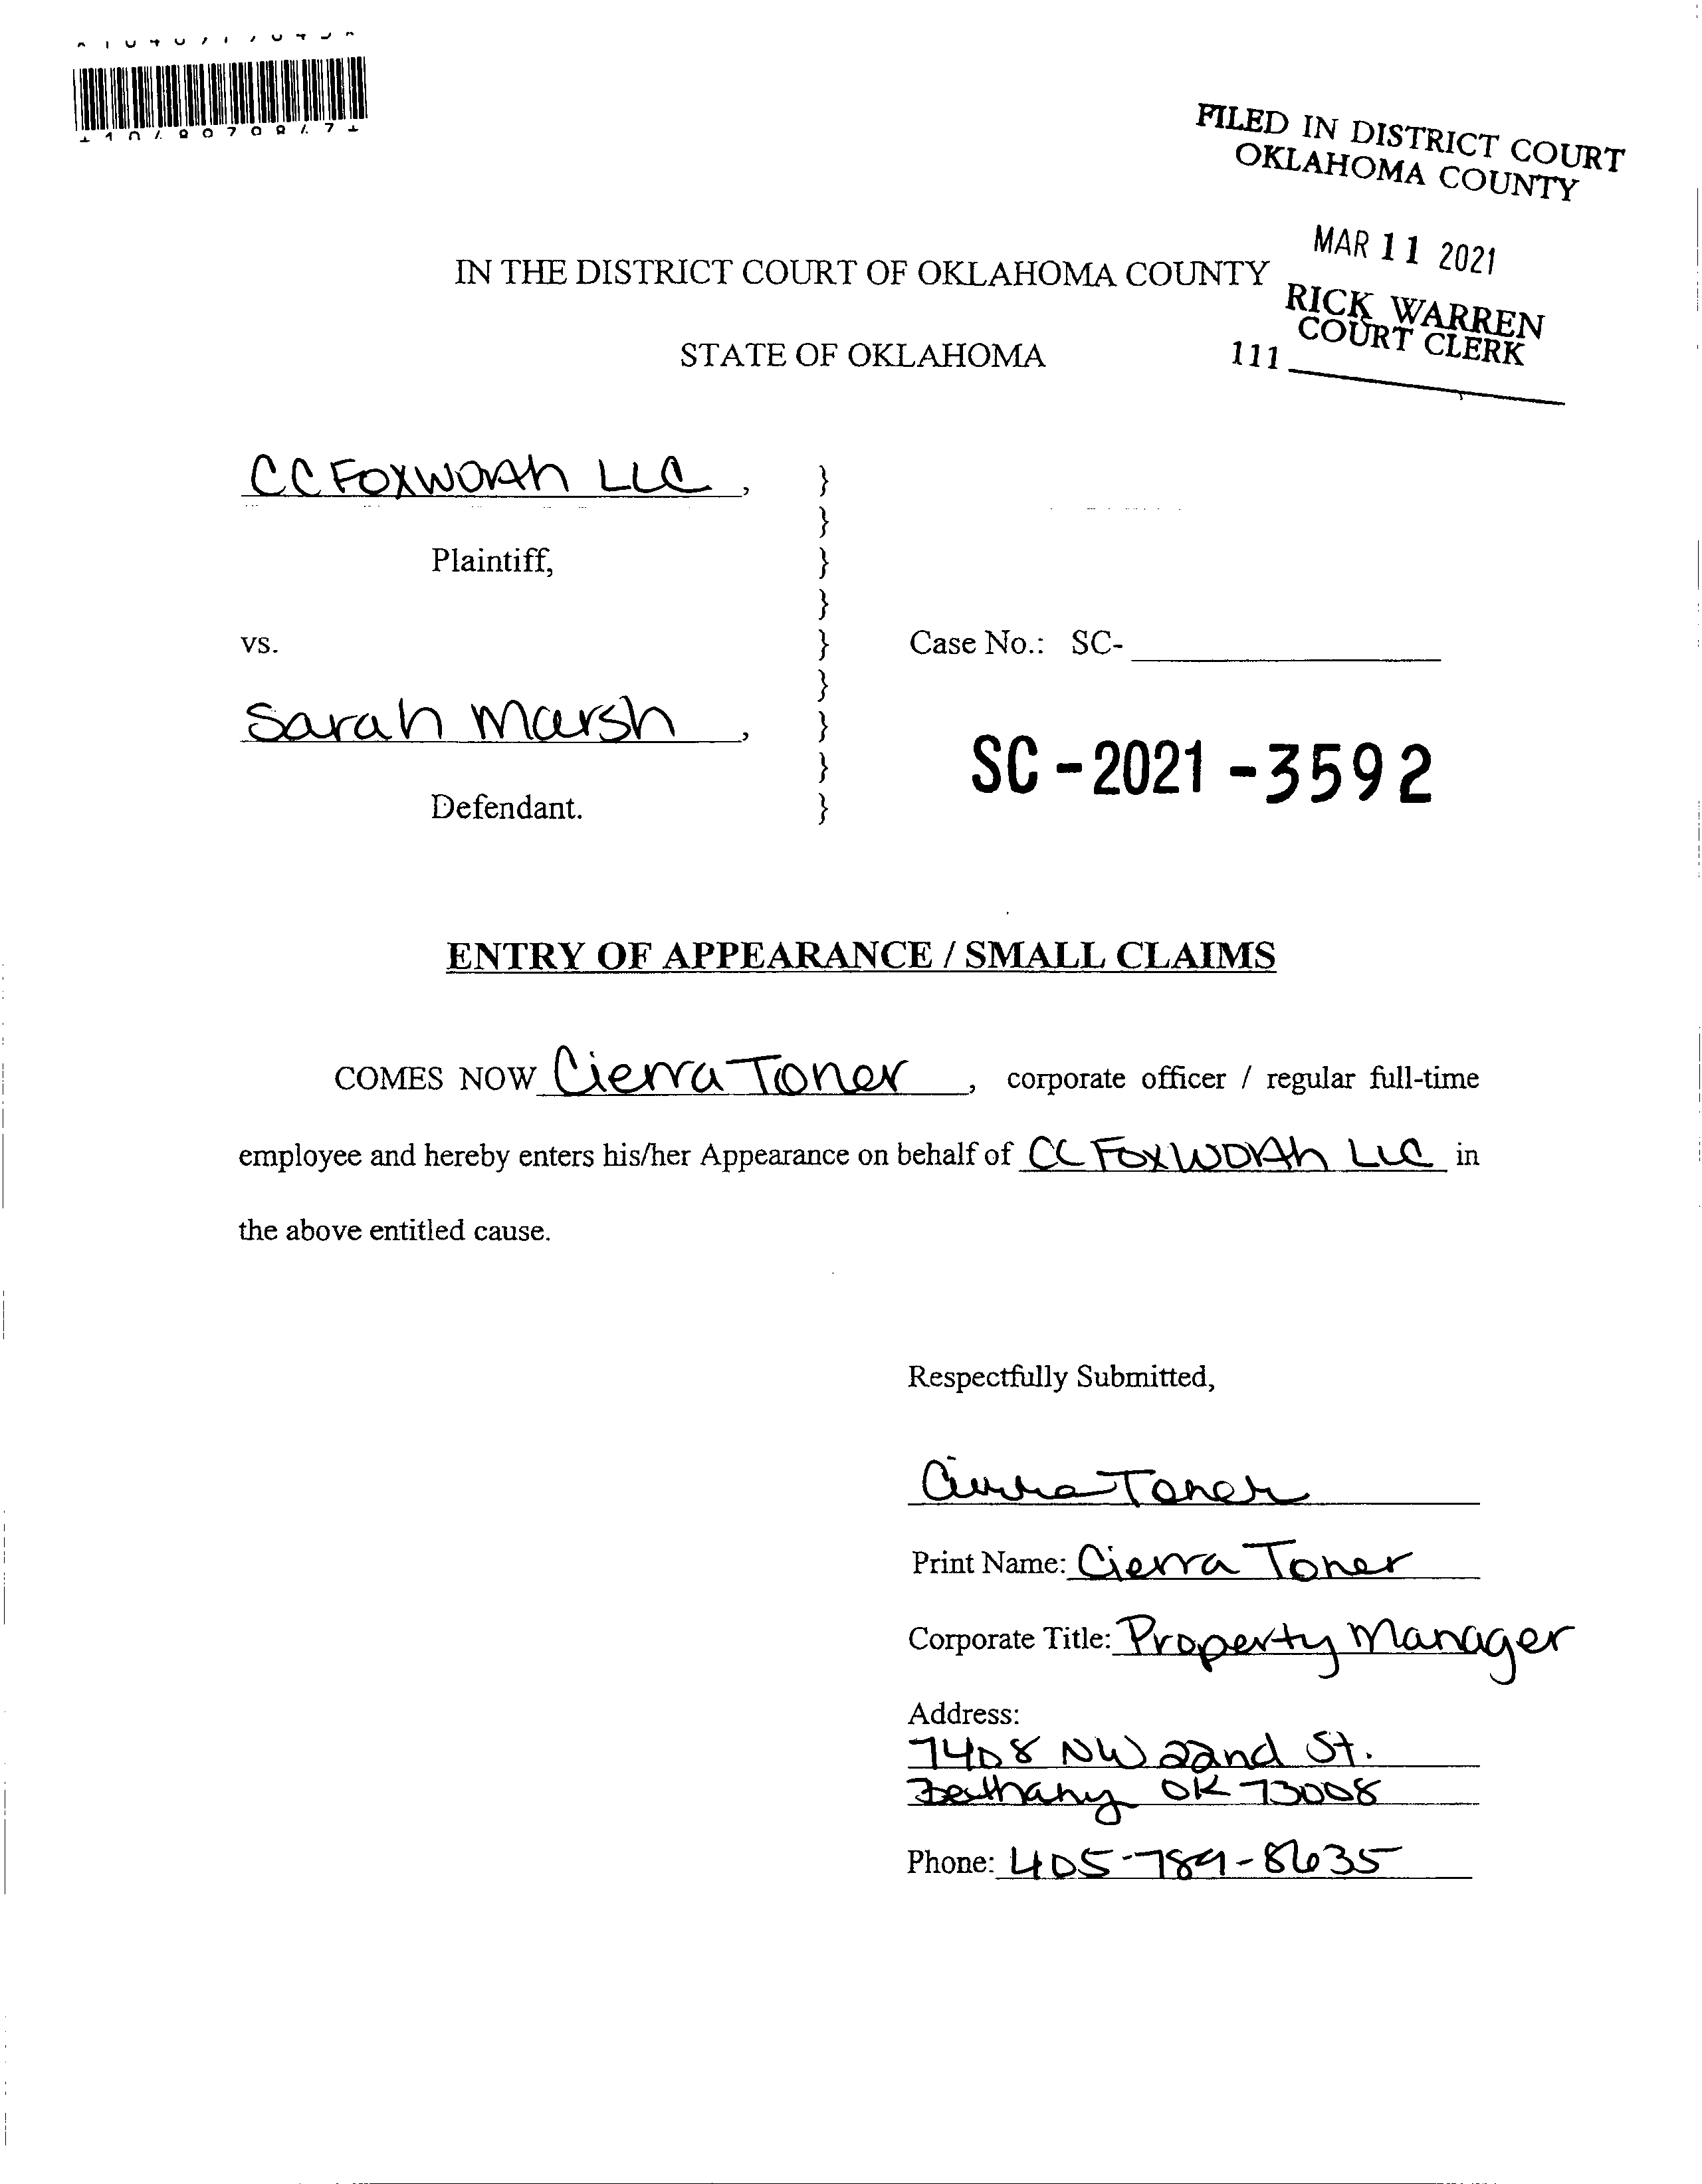 FILED IN DISTRICT COURT
OKLAHOMA COUNTY
MAR 11 2021
RICK WARREN
COURT CLERK
111
IN THE DISTRICT COURT OF OKLAHOMA COUNTY
STATE OF OKLAHOMA
CC Foxworth LLC,
Plaintiff,
vs.
Sarah Marsh,
Defendant.
}
}
}
}
}
}
}
}
}
Case No.: SC-
SC-2021-3592
ENTRY OF APPEARANCE / SMALL CLAIMS
COMES NOW Cierra Toner, corporate officer / regular full-time
employee and hereby enters his/her Appearance on behalf of CC Foxworth LLC in
the above entitled cause.
Respectfully Submitted,
Cierra Toner
Print Name: Cierra Toner
Corporate Title: Property Manager
Address:
7408 NW 22nd St.
Bethany OK 73008
Phone: 405-789-8635